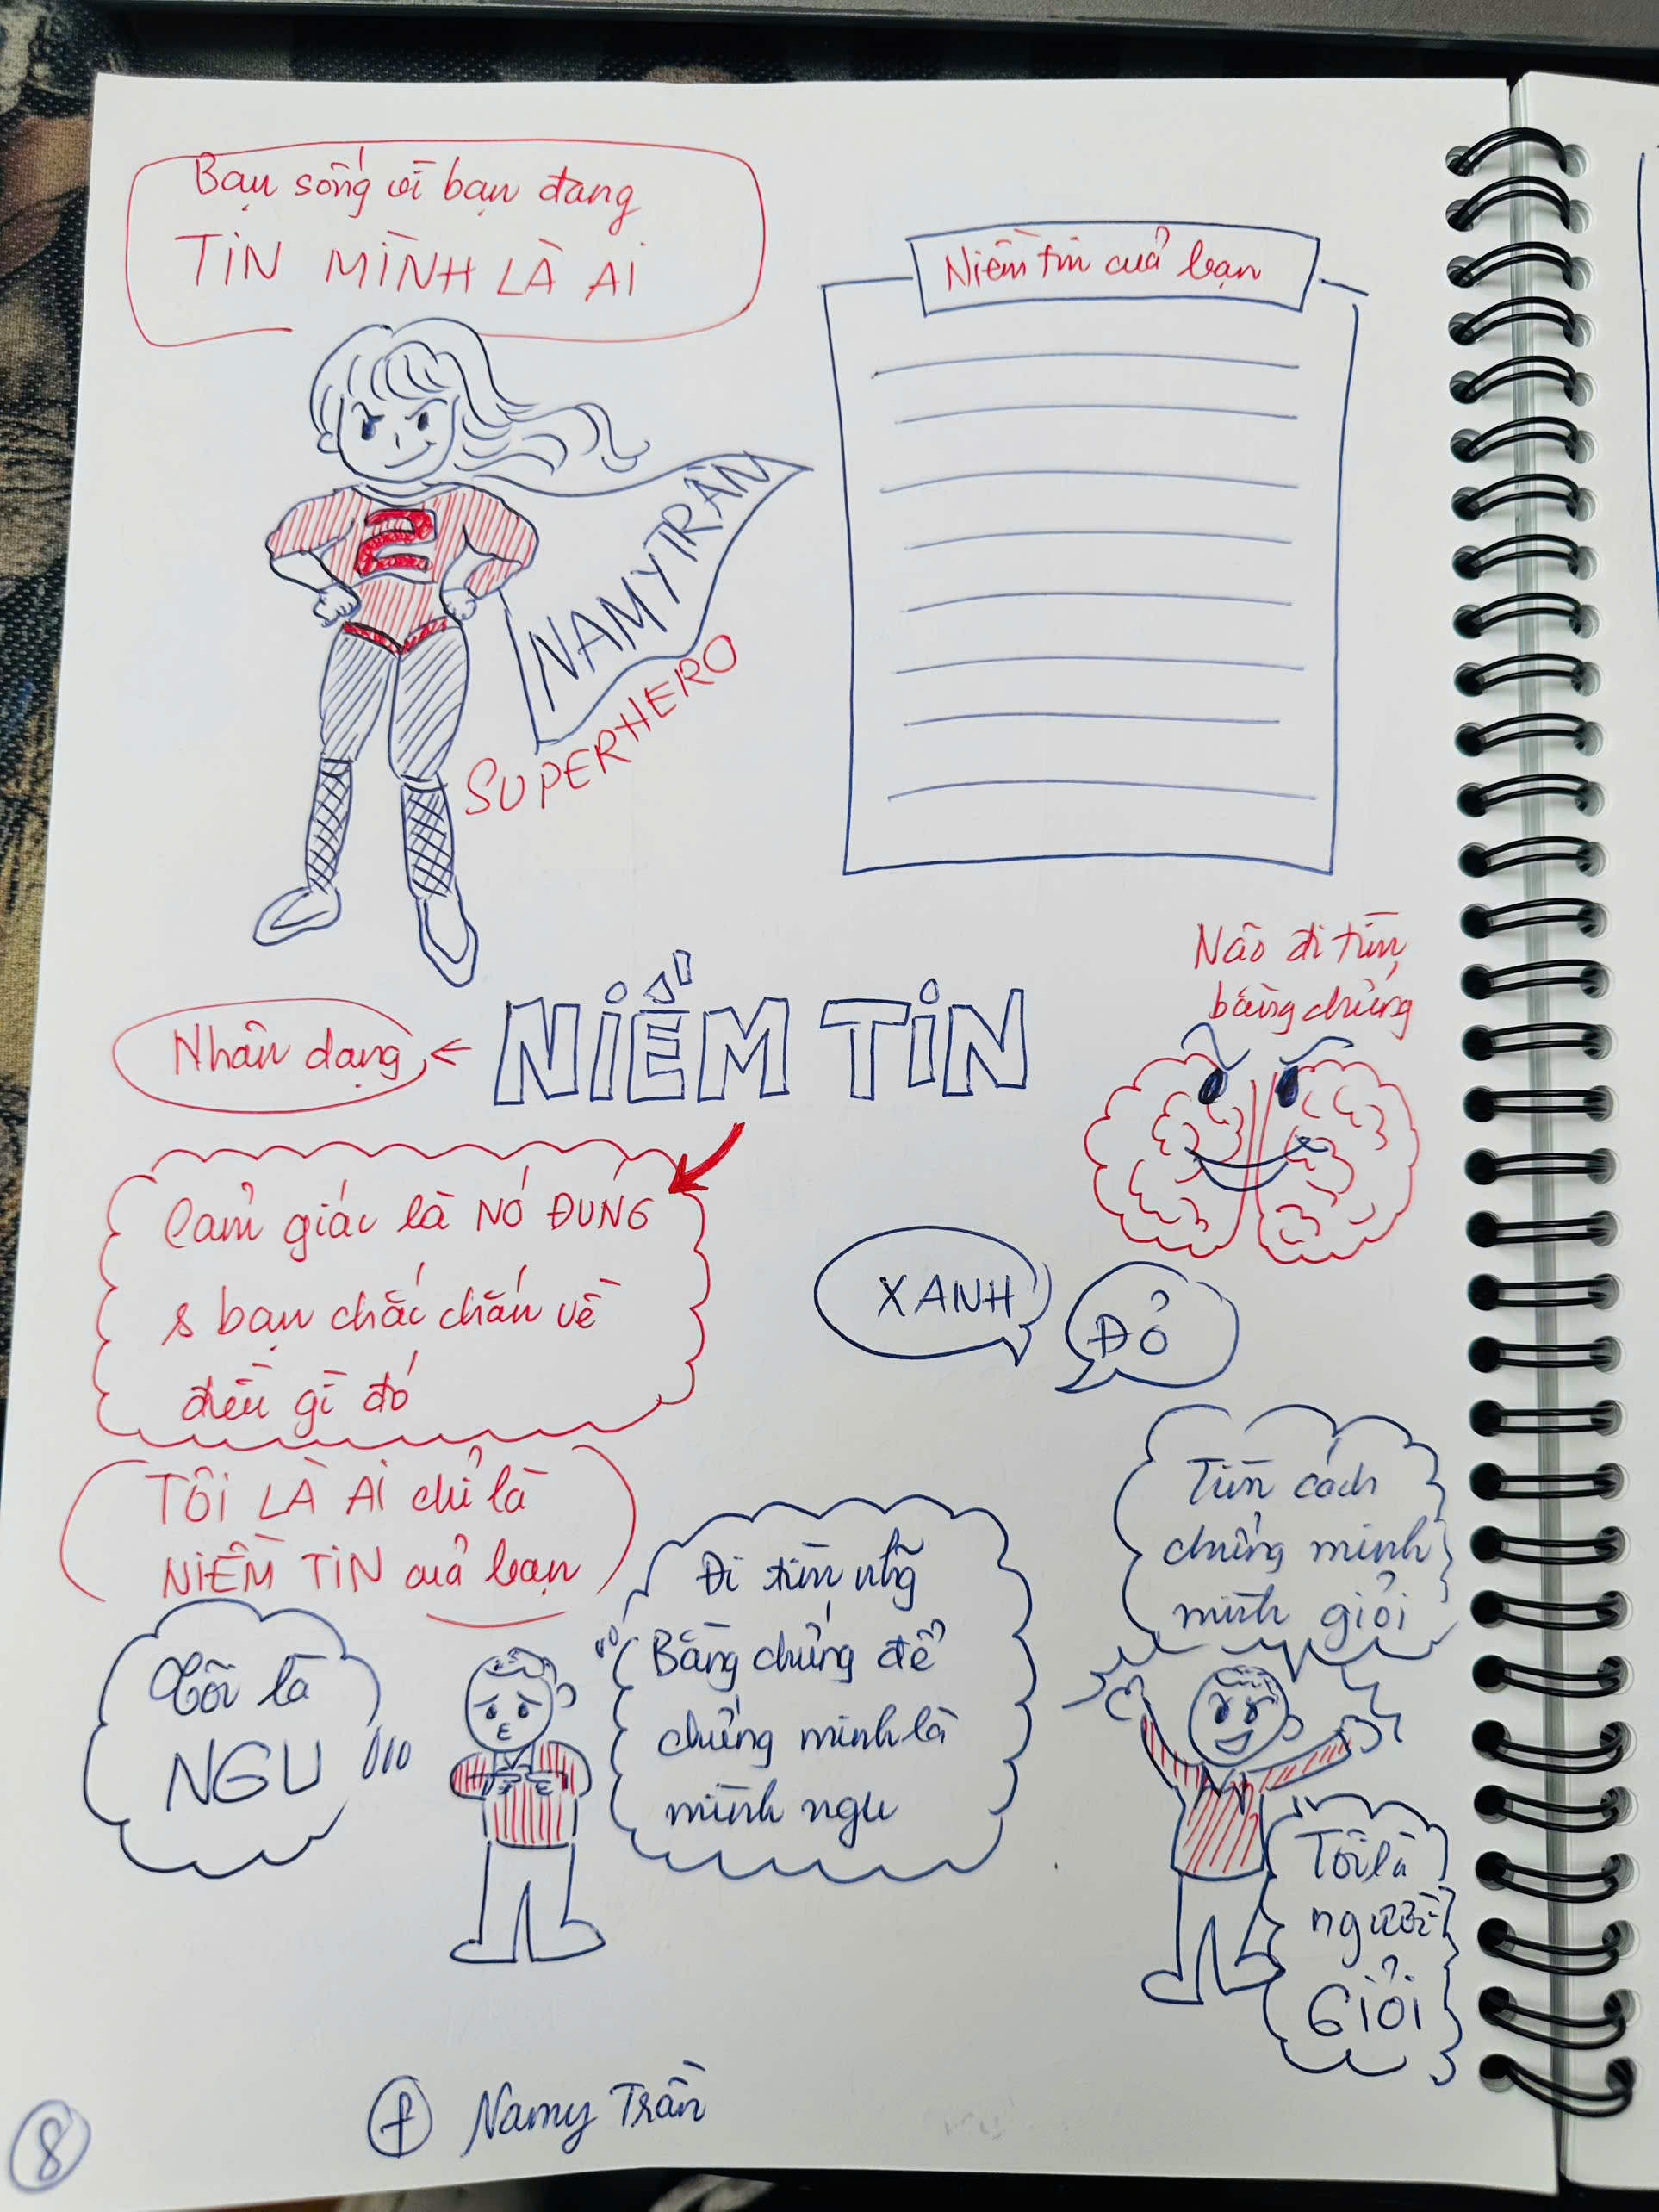 Bạn sống vì bạn đang
TIN MÌNH LÀ AI
Niềm tin của bạn
2
NAMY TRẦN
SUPERHERO
Nhân dạng
NIỀM TIN
Não đi tìm
bằng chứng
Cảm giác là NÓ ĐÚNG
& bạn chắc chắn về
điều gì đó
XANH
ĐỎ
TÔI LÀ AI chỉ là
NIỀM TIN của bạn
Tôi là
NGU
Đi tìm nhữg
Bằng chứng để
chứng minh là
mình ngu
Tìm cách
chứng minh
mình giỏi
Tôi là
người
Giỏi
f Namy Trần
8